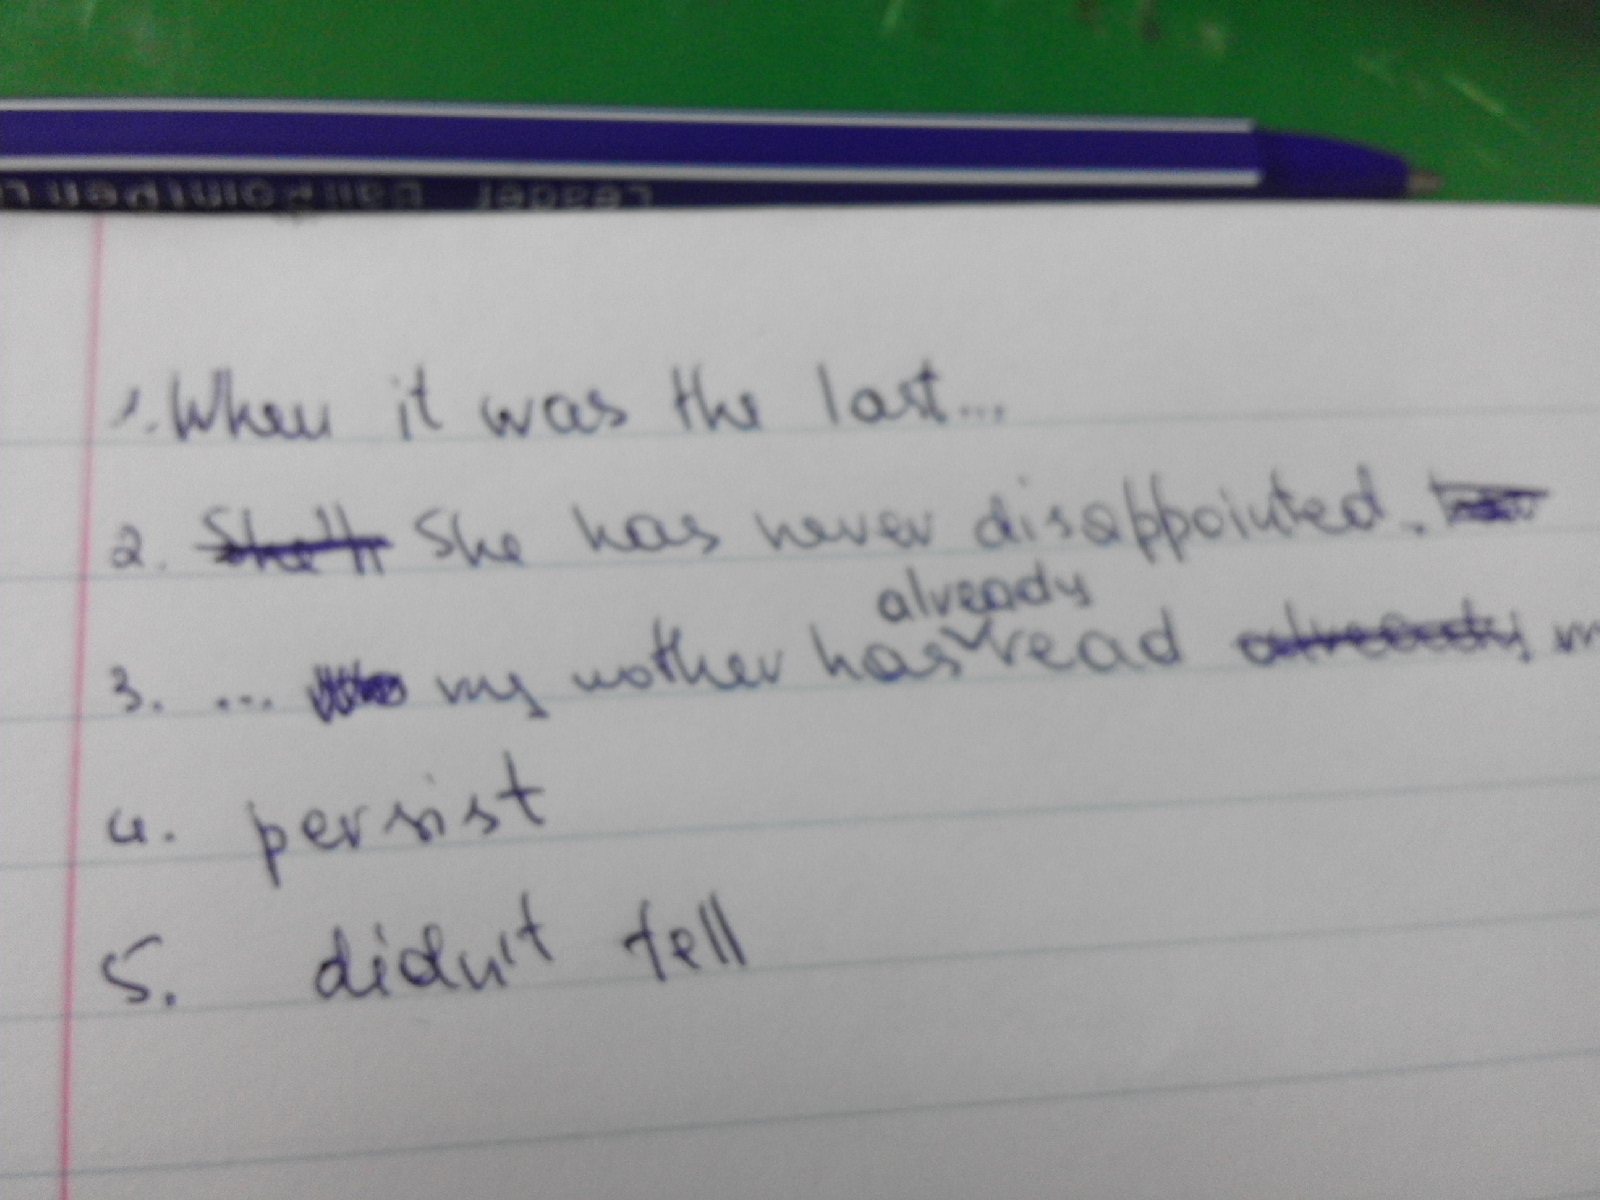 Leader Ballpoint Pen
1. When it was the last...
2. She has never disappointed.
already
3. ... my mother has read
4. persist
5. didn't tell